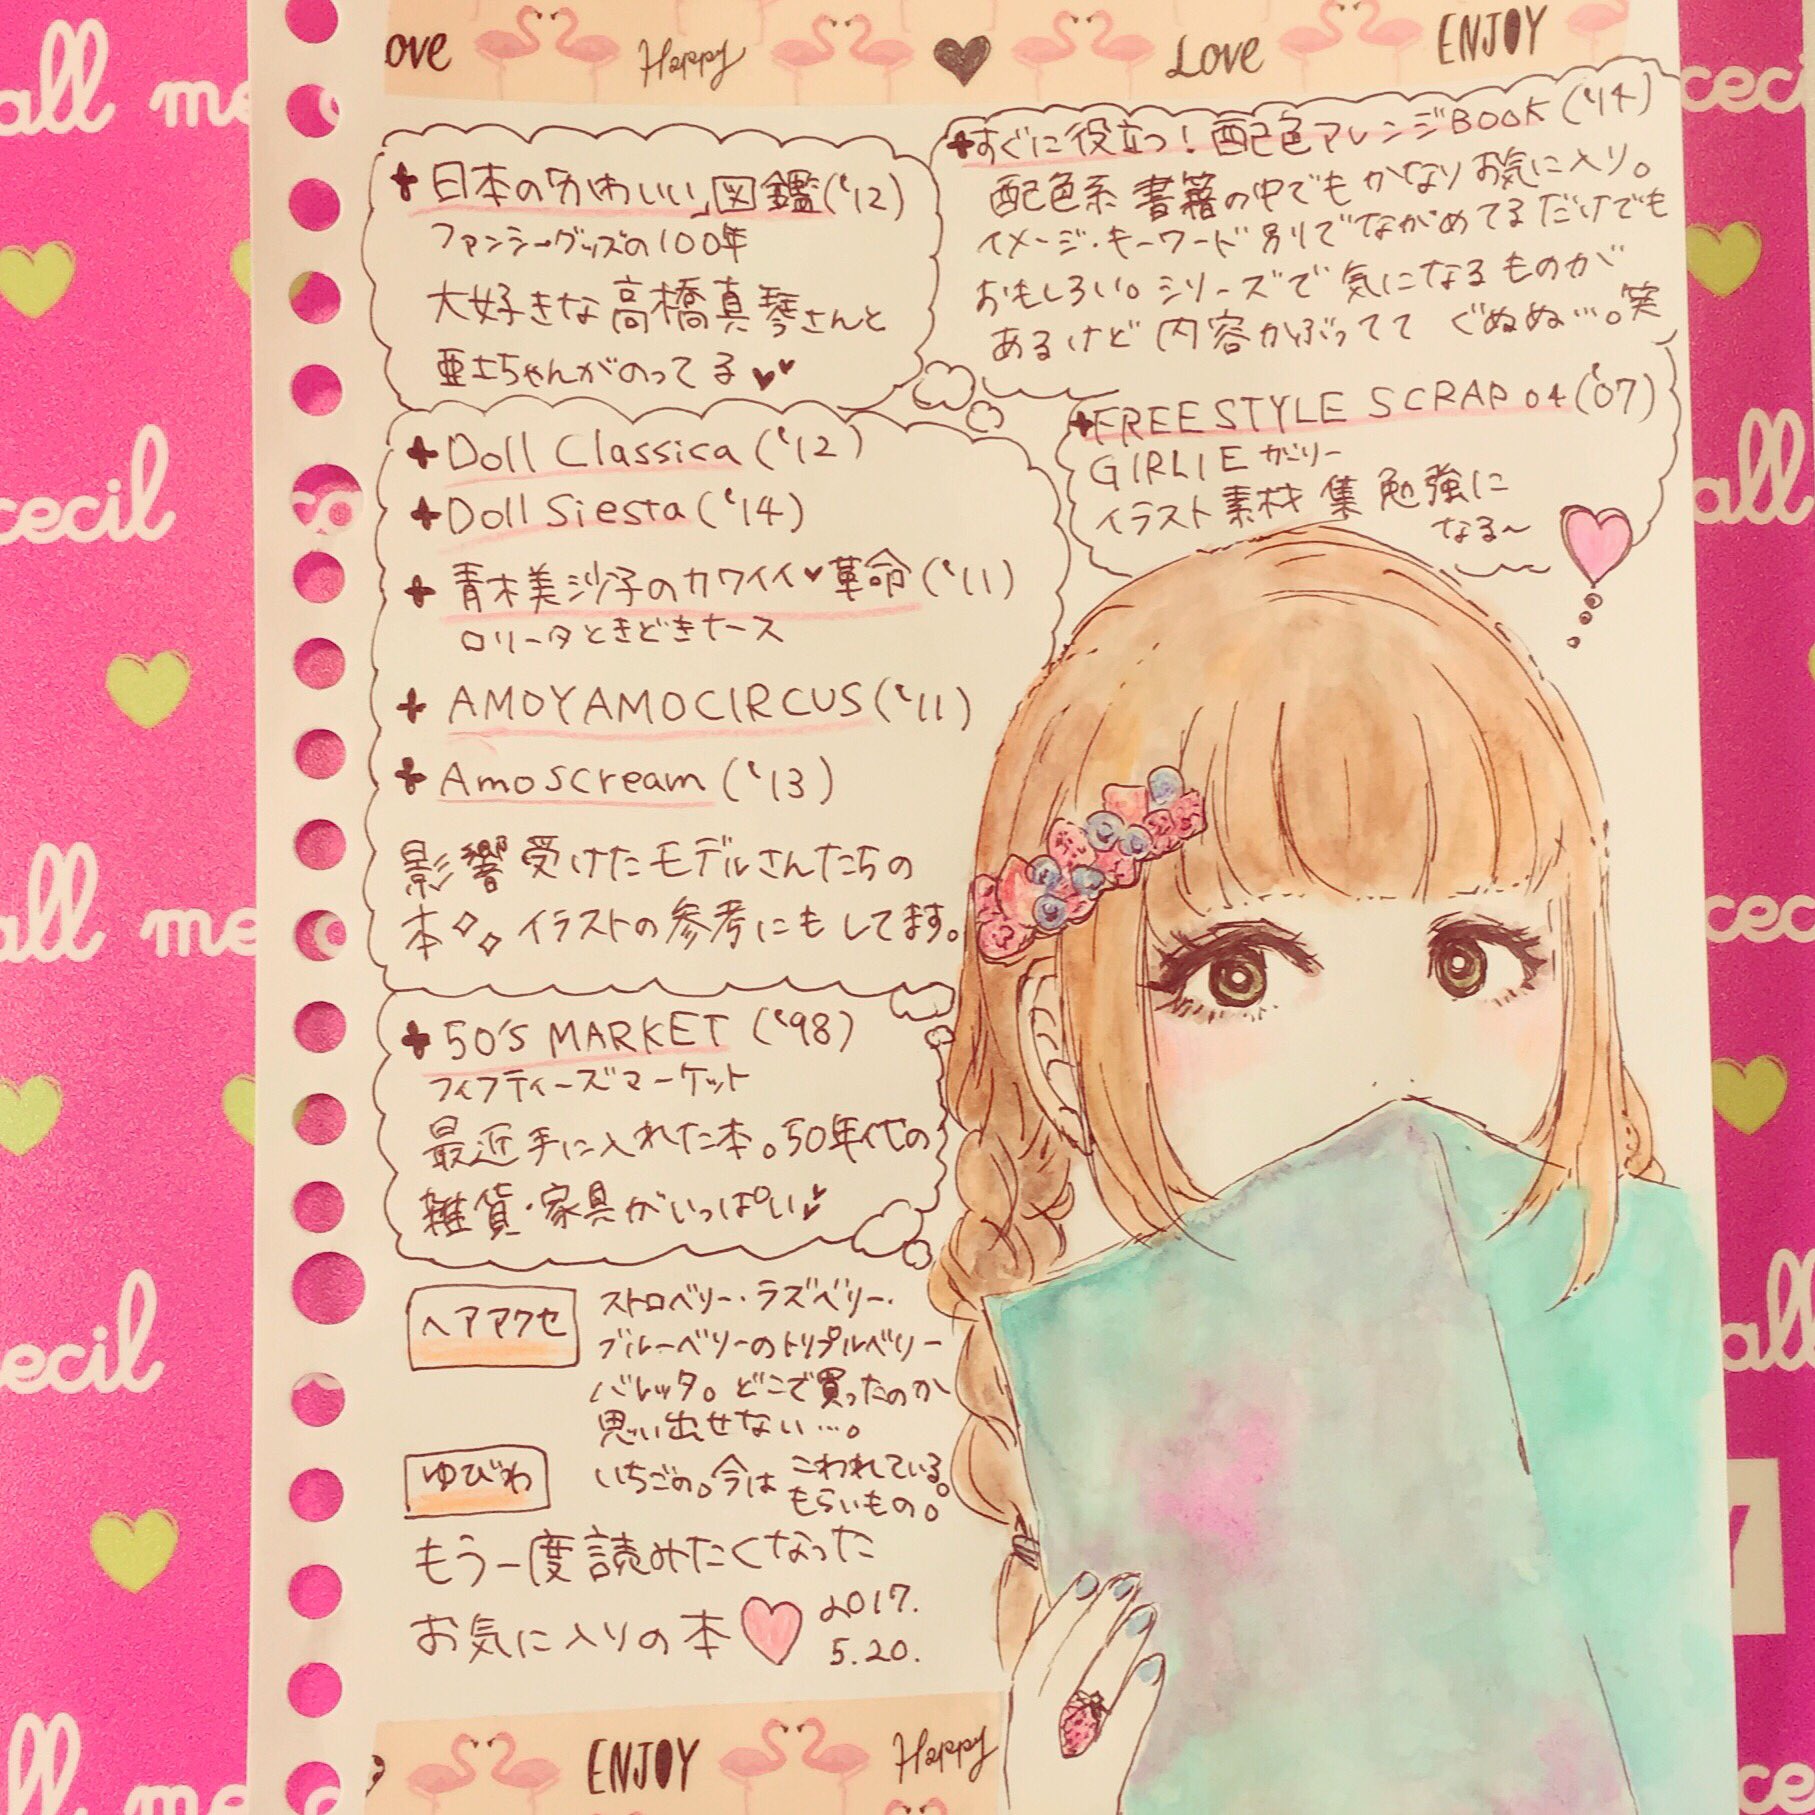 ove Happy Love ENJOY
日本の「かわいい」図鑑('12)
ファンシーグッズの100年
大好きな高橋真琴さんと
亜土ちゃんがのってる
すぐに役立つ!配色アレンジBOOK('14)
配色系書籍の中でもかなりお気に入り。
イメージ・キーワード別でながめてるだけでも
おもしろい。シリーズで気になるものが
あるけど内容かぶってて ぐぬぬ…。笑
FREE STYLE SCRAP 04('07)
GIRLIE ガーリー
イラスト素材集 勉強に
なる~
Doll Classica('12)
Doll Siesta('14)
青木美沙子のカワイイ♥革命('11)
ロリータときどきナース
AMOYAMOCIRCUS('11)
Amoscream('13)
影響受けたモデルさんたちの
本 イラストの参考にもしてます。
50'S MARKET('98)
フィフティーズマーケット
最近手に入れた本。50年代の
雑貨・家具がいっぱい
ヘアアクセ
ストロベリー・ラズベリー・
ブルーベリーのトリプルベリー
バレッタ。どこで買ったのか
思い出せない…。
ゆびわ
いちごの。今はこわれている。
もらいもの。
もう一度読みたくなった
お気に入りの本
2017.
5.20.
ENJOY Happy
all me
cecil
all me
cecil
all me
cecil
all
cec
all
cec
all
cecil